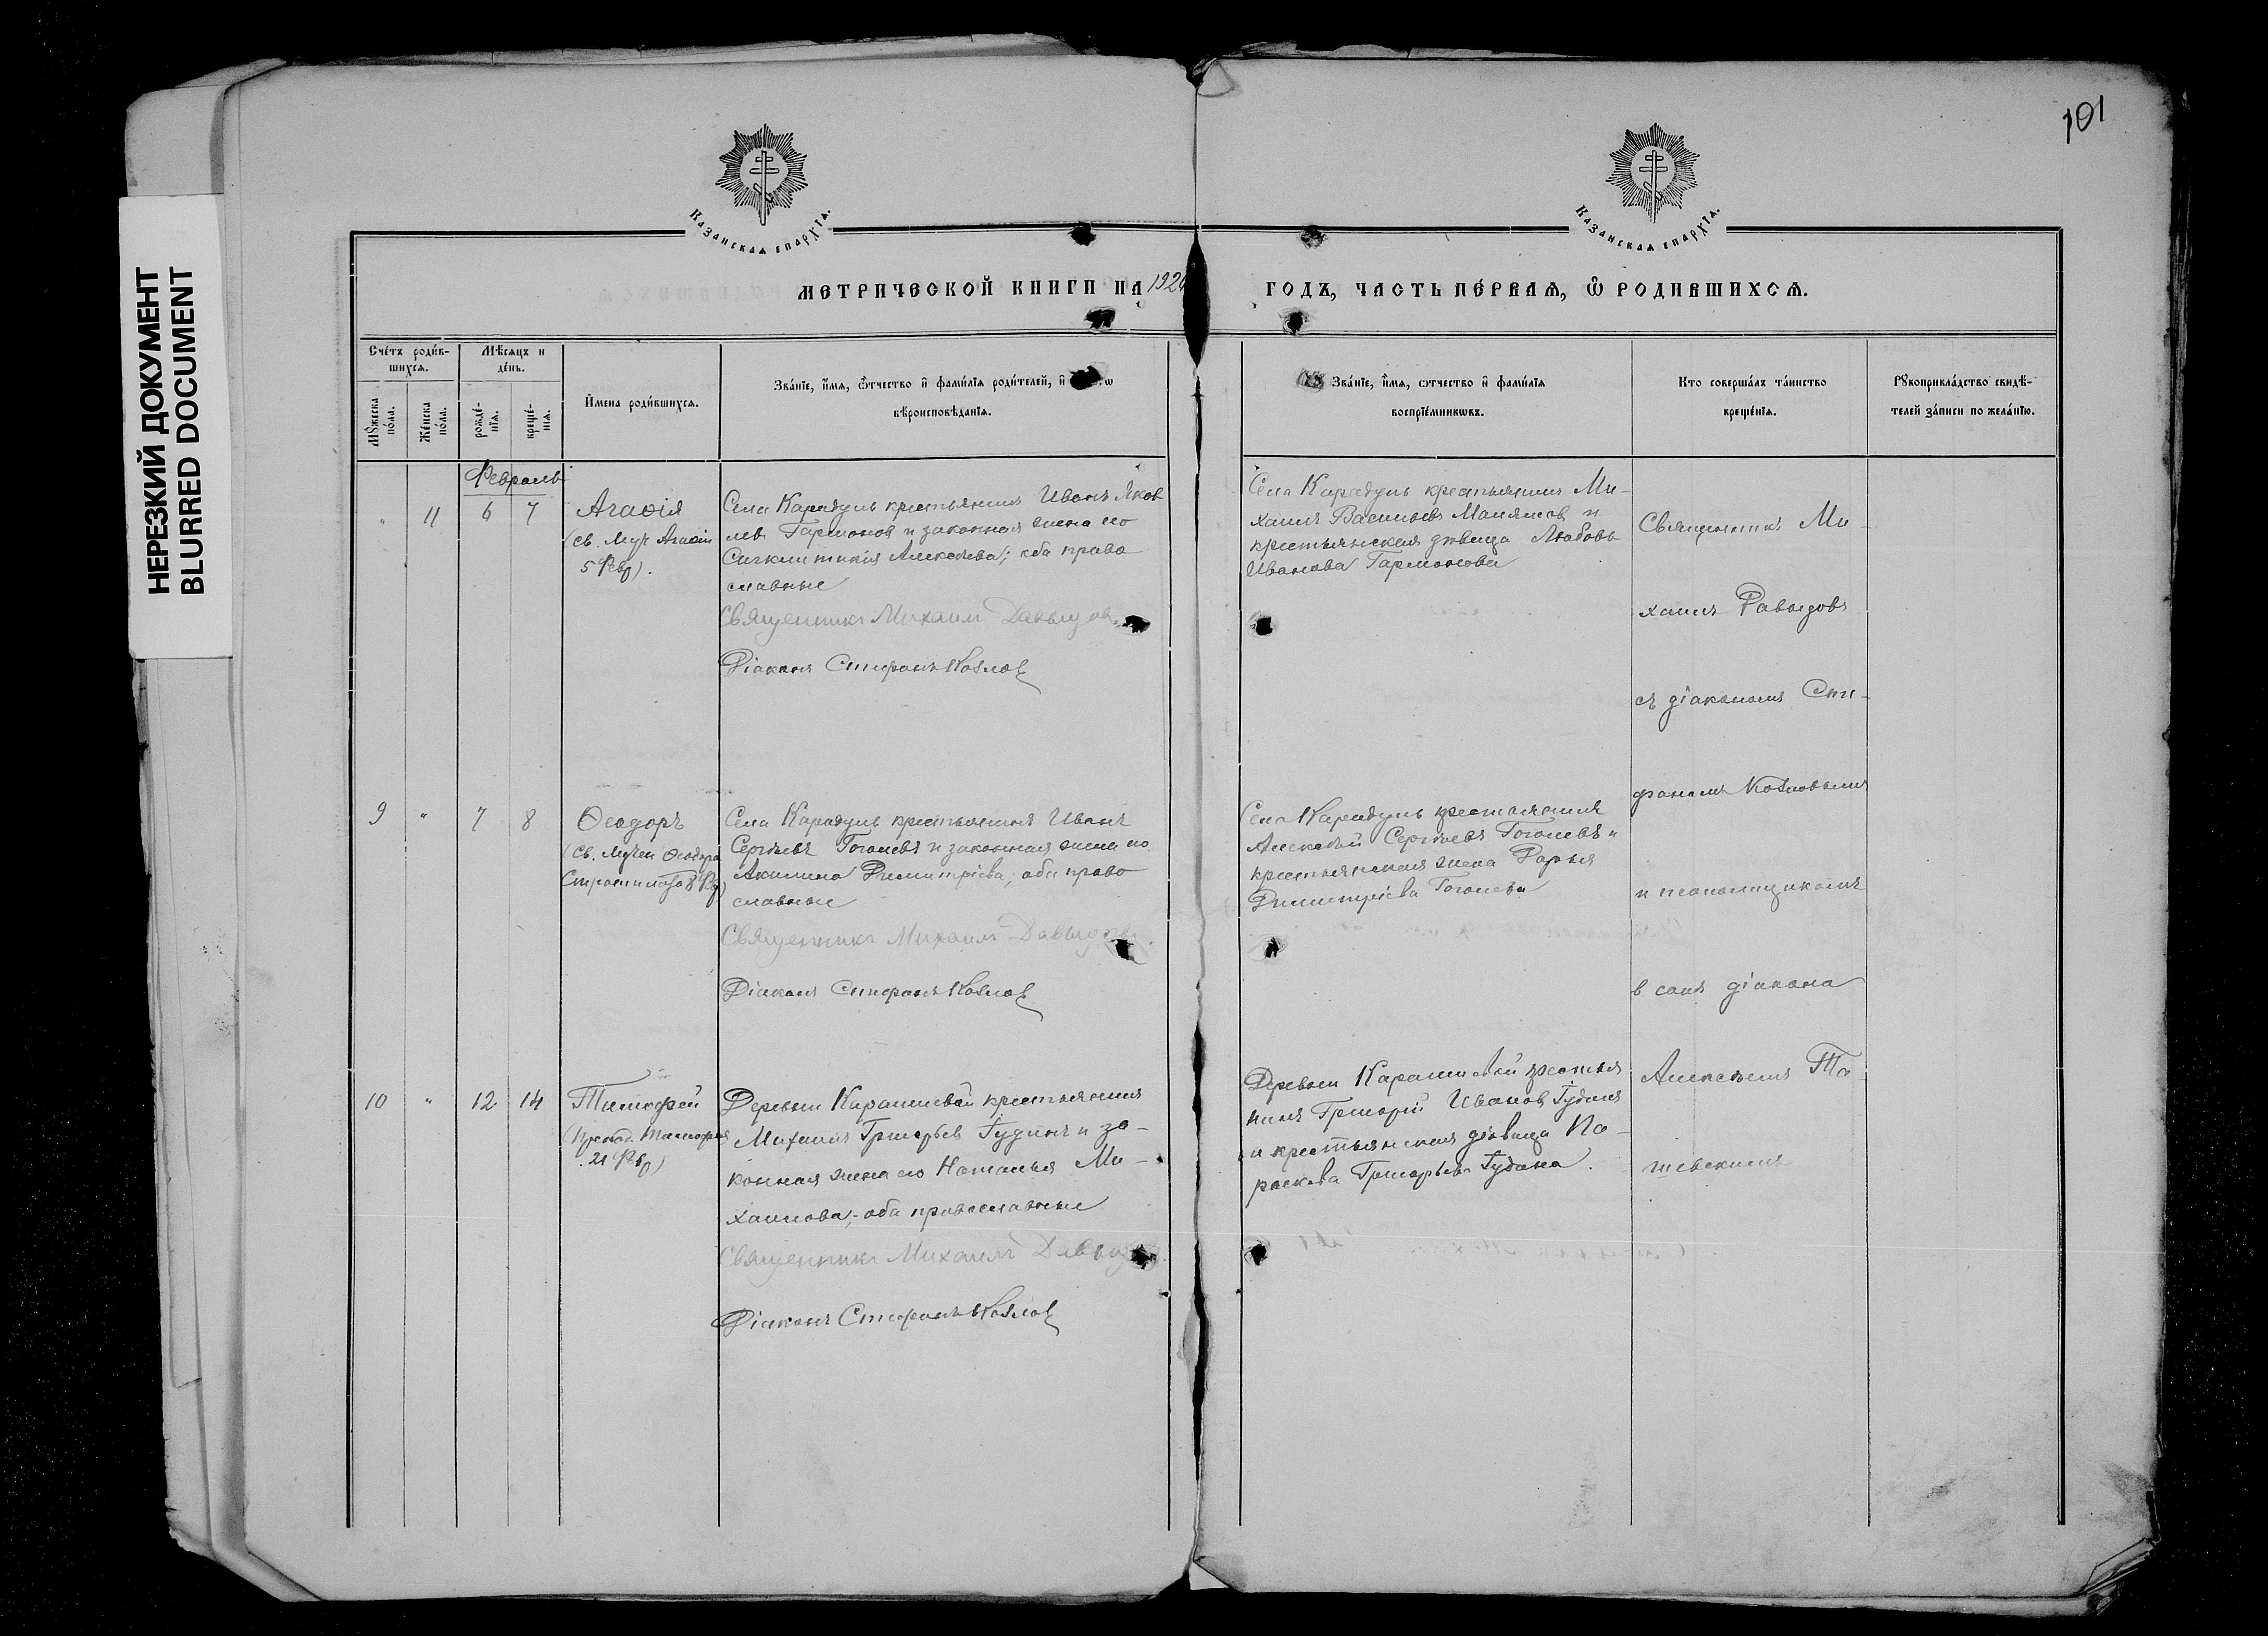 НЕРЕЗКИЙ ДОКУМЕНТ
BLURRED DOCUMENT
101
Казанская епархїѧ.
Казанская епархїѧ.
МЕТРИЧЕСКОЙ КНИГИ НА 192
ГОДЪ, ЧАСТЬ ПЕ́РВАѦ, Ѽ РОДИВШИХСѦ.
Сче́тъ роди́в-
шихсѧ.
Мѣ́сѧцъ и
де́нь.
Мꙋ́жеска
по́ла.
Же́нска
по́ла.
рожде́-
нїѧ.
креще́-
нїѧ.
И҆мена роди́вшихсѧ.
Зва́нїе, и҆́мѧ, ѻ҆́тчество и҆ фами́лїѧ роди́телей, и҆
вѣроисповѣ́данїѧ.
Зва́нїе, и҆́мѧ, ѻ҆́тчество и҆ фами́лїѧ
воспрїе́мникѡвъ.
Кто соверша́лъ та́инство
креще́нїѧ.
Рꙋкоприкла́дство свидѣ́-
телей за́писи по жела́нїю.
Февраль
" 11 6 7
Агаѳія
(св. муч Агаѳіи
5 Февр).
Села Карадуль крестьянинъ Иванъ Яков
левъ Гармонов и законная жена его
Синклитикія Алексѣева; оба право
славные
Священникъ Михаилъ Давыдов
Діаконъ Стефанъ Козлов
Села Карадуль крестьянинъ Ми-
хаилъ Васильевъ и
крестьянская дѣвица Любовь
Иванова Гармонова
Священникъ Ми-
хаилъ Давыдовъ
съ діакономъ Сте-
фаномъ Козловымъ
и псаломщикомъ
в санѣ діакона
Алексѣемъ
9 " 7 8
Ѳеодоръ
(св. Мучен Ѳеодора
Стратилата 8 Фев)
Села Карадуль крестьянинъ Иванъ
Сергѣевъ Гоголевъ и законная жена его
Акилина Димитріева; оба право
славные
Священникъ Михаилъ Давыдовъ.
Діаконъ Стефанъ Козлов
Села Карадуль крестьянинъ
Алексѣй Сергѣевъ Гоголевъ и
крестьянская жена Дарья
Димитріева Гоголева
10 " 12 14
Тимофей
(Препод. Тимофея
21 Февр)
Деревни крестьянинъ
Михаилъ Григорьев Гудинъ и за-
конная жена его Наталья Ми-
хаилова; оба православные
Священникъ Михаилъ Давыд
Діаконъ Стефанъ Козлов
Деревни крестья
нинъ Григорій Иванов Гудинъ
и крестьянская дѣвица Па-
раскева Григорьева Гудина.